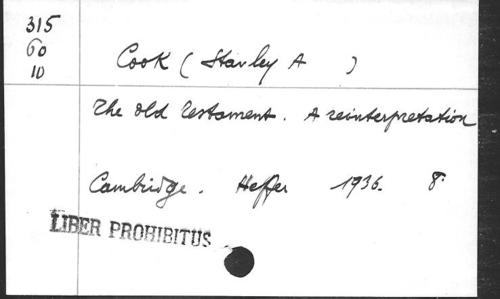 315
60
10
Cook (Stanley A )
The old Testament. A reinterpretation
Cambridge. Heffer 1936. 8°
LIBER PROHIBITUS